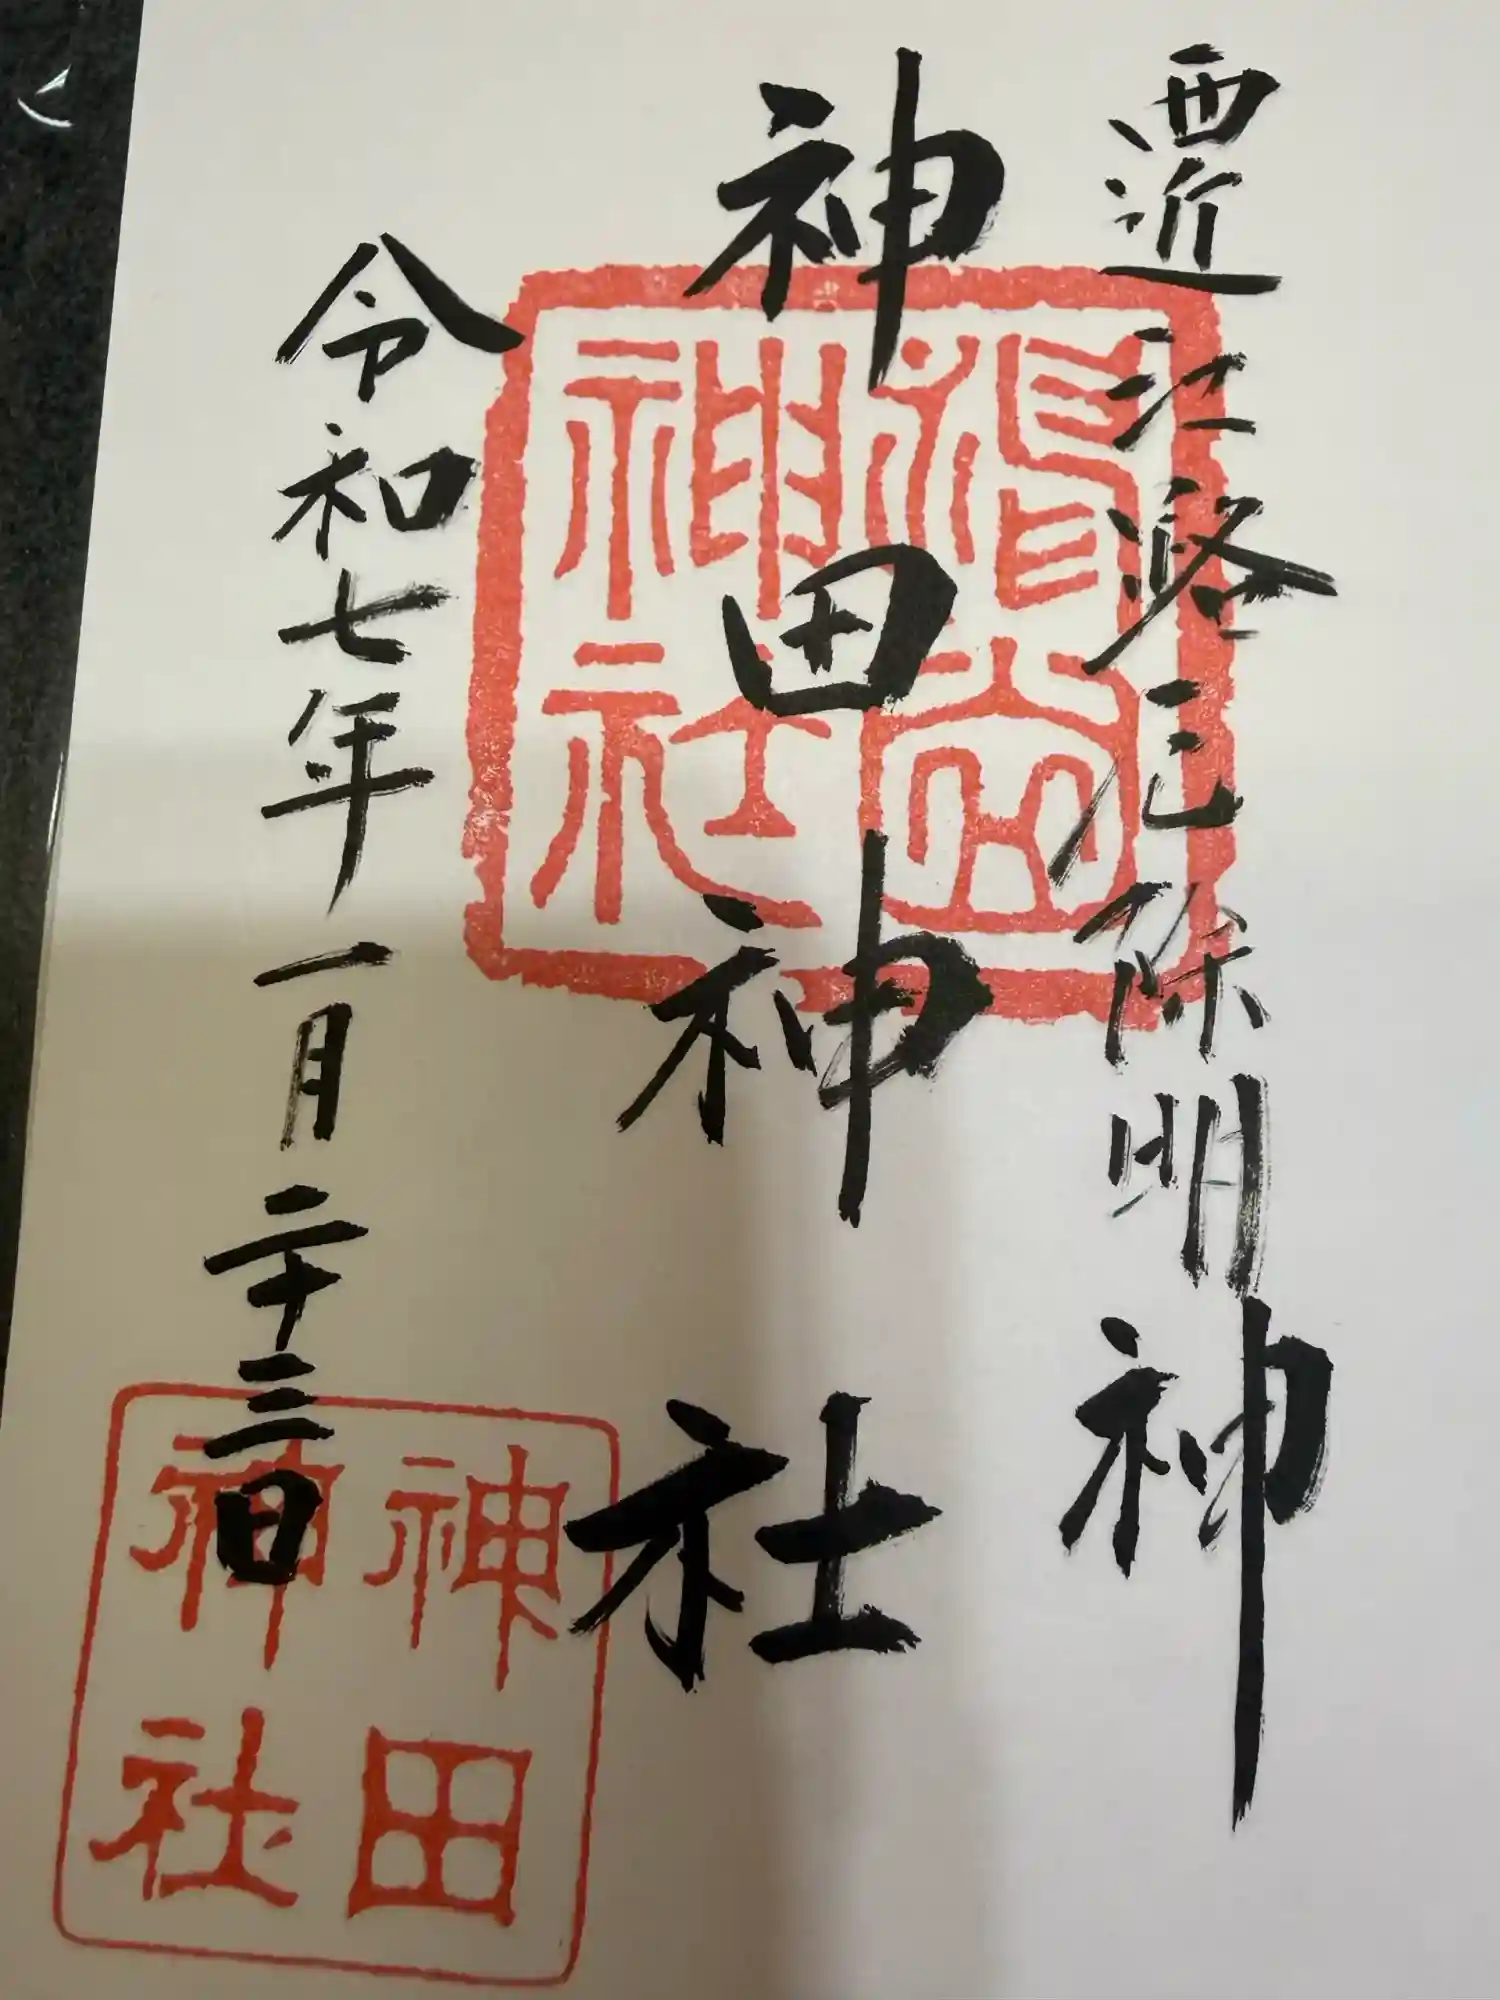 西近江路厄除明神
神田神社
令和七年一月二十三日
神社
神田
神社